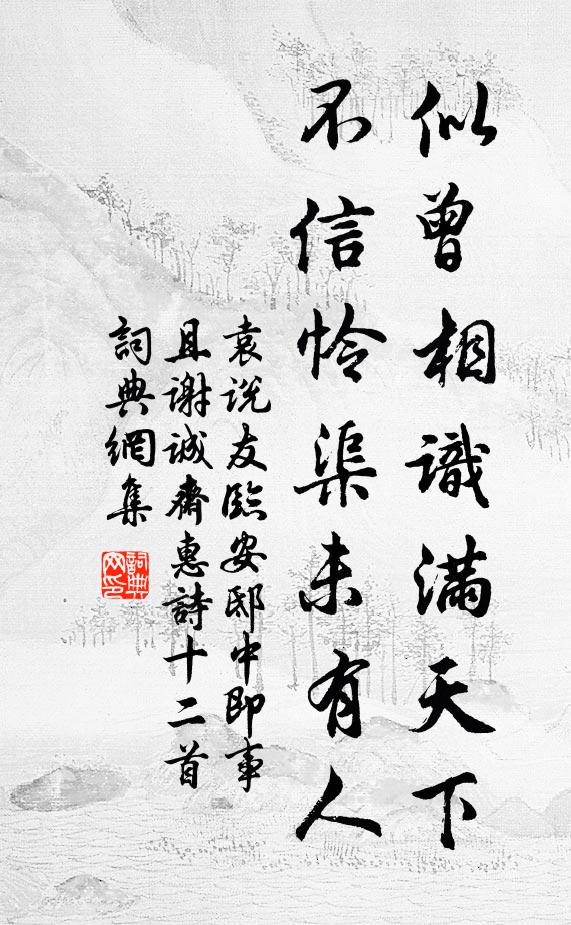 似曾相識滿天下
不信怜渠未有人
袁说友臨安邸中即事
且谢诚齋惠詩十二首
詞典網集
詞典網印